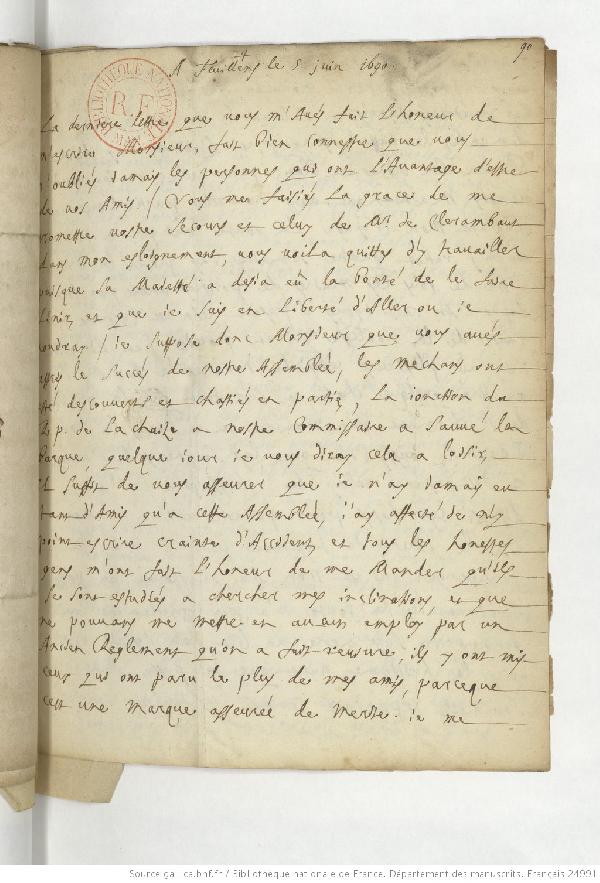 90
A Feuillens le 5 juin 1690.
BIBLIOTHEQUE NATIONALE
R.F.
La derniere lettre que vous m'Aués fait l'honeur de
m'escrire Monsieur, fait bien connestre que vous
n'oubliés iamais les personnes qui ont l'Auantage d'estre
de vos Amis / Vous me faisiés la grace de me
promettre vostre secours et celuy de Mr de Clerambaut
dans mon esloignement, vous voila quittes d'y trauailler
puisque sa Maiesté a desia eu la bonté de le faire
finir, et que ie suis en liberté d'Aller ou ie
voudray / ie suppose donc Monsieur que vous aués
le succés de nostre Assemblée, les mechans ont
esté descouverts et chastiés en partie, la ionction du
R. p. de la chaize a nostre Commissaire a sauué la
barque, quelque iour ie vous diray cela a loisir,
il suffit de vous asseurer que ie n'ay iamais eu
tant d'Amis qu'a cette Assemblée, i'ay affecté de n'y
point escrire crainte d'Accident, et tous les honestes
gens m'ont fait l'honeur de me Mander qu'ils
se sont estudiés a chercher mes inclinations, et que
ne pouuans me mettre en aucun employ par un
Ancien Reglement qu'on a fait reuiure, ils y ont mis
ceux qui ont paru le plus de mes amis, parceque
c'est une marque asseurée de merite. ie me
Source gallica.bnf.fr / Bibliothèque nationale de France. Département des manuscrits. Français 24991